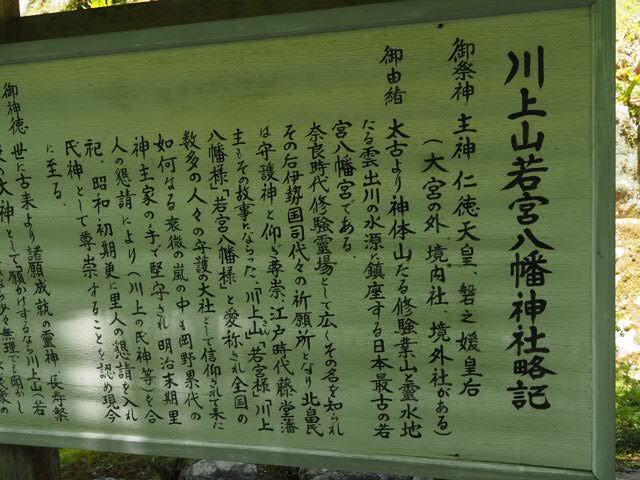 川上山若宮八幡神社略記
御祭神 主神 仁徳天皇 磐之媛皇后
(大宮の外、境内社、境外社がある)
御由緒 太古より神体山たる修験業山霊水地
たる雲出川の水源に鎮座する日本最古の若
宮八幡宮である。
奈良時代修験霊場として広くその名を知られ
その后伊勢国司代々の祈願所となり北畠氏
は守護神と仰ぎ尊崇、江戸時代藤堂藩
主もその故事にならった、「川上山」「若宮様」「川上
八幡様」「若宮八幡様」と愛称され全国の
数多の人々の守護の大社として信仰されて来た
如何なる衰微の嵐の中も岡野累代の
神主家の手で堅守され明治末期里
人の懇請により(川上の氏神等)を合
祀、昭和初期更に里人の懇請を入れ
氏神として尊崇することを認め現今
に至る。
御神徳 世に古来より諸願成就の霊神、長寿繁
の大神として願かけするなら川上山(若